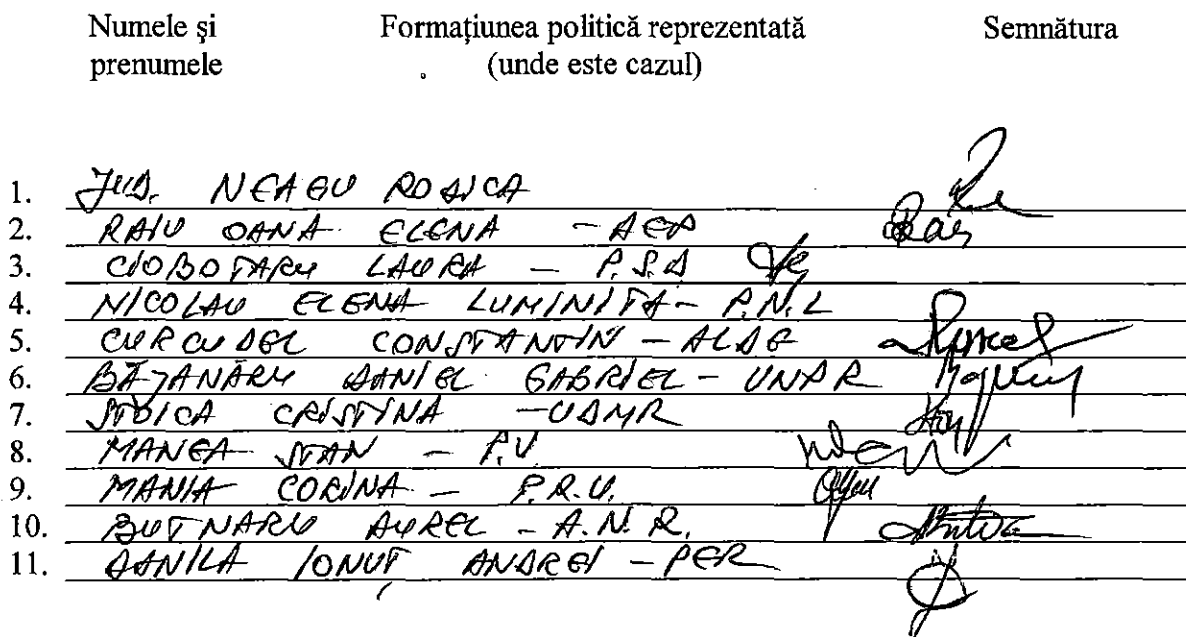 Numele și Formațiunea politică reprezentată Semnătura
prenumele (unde este cazul)
1. JUD. NEAGU RODICA
2. RAIU OANA ELENA - AEP
3. CIOBOTARU LAURA - P.S.D
4. NICOLAU ELENA LUMINITA - P.N.L
5. CURCUDEL CONSTANTIN - ALDE
6. BĂJANARU DANIEL GABRIEL - UNPR
7. STOICA CRISTINA - UDMR
8. MANEA STAN - P.V.
9. MANIA CORINA - P.R.U.
10. BUTNARU AUREL - A.N.R.
11. DANILA IONUȚ ANDREI - PER